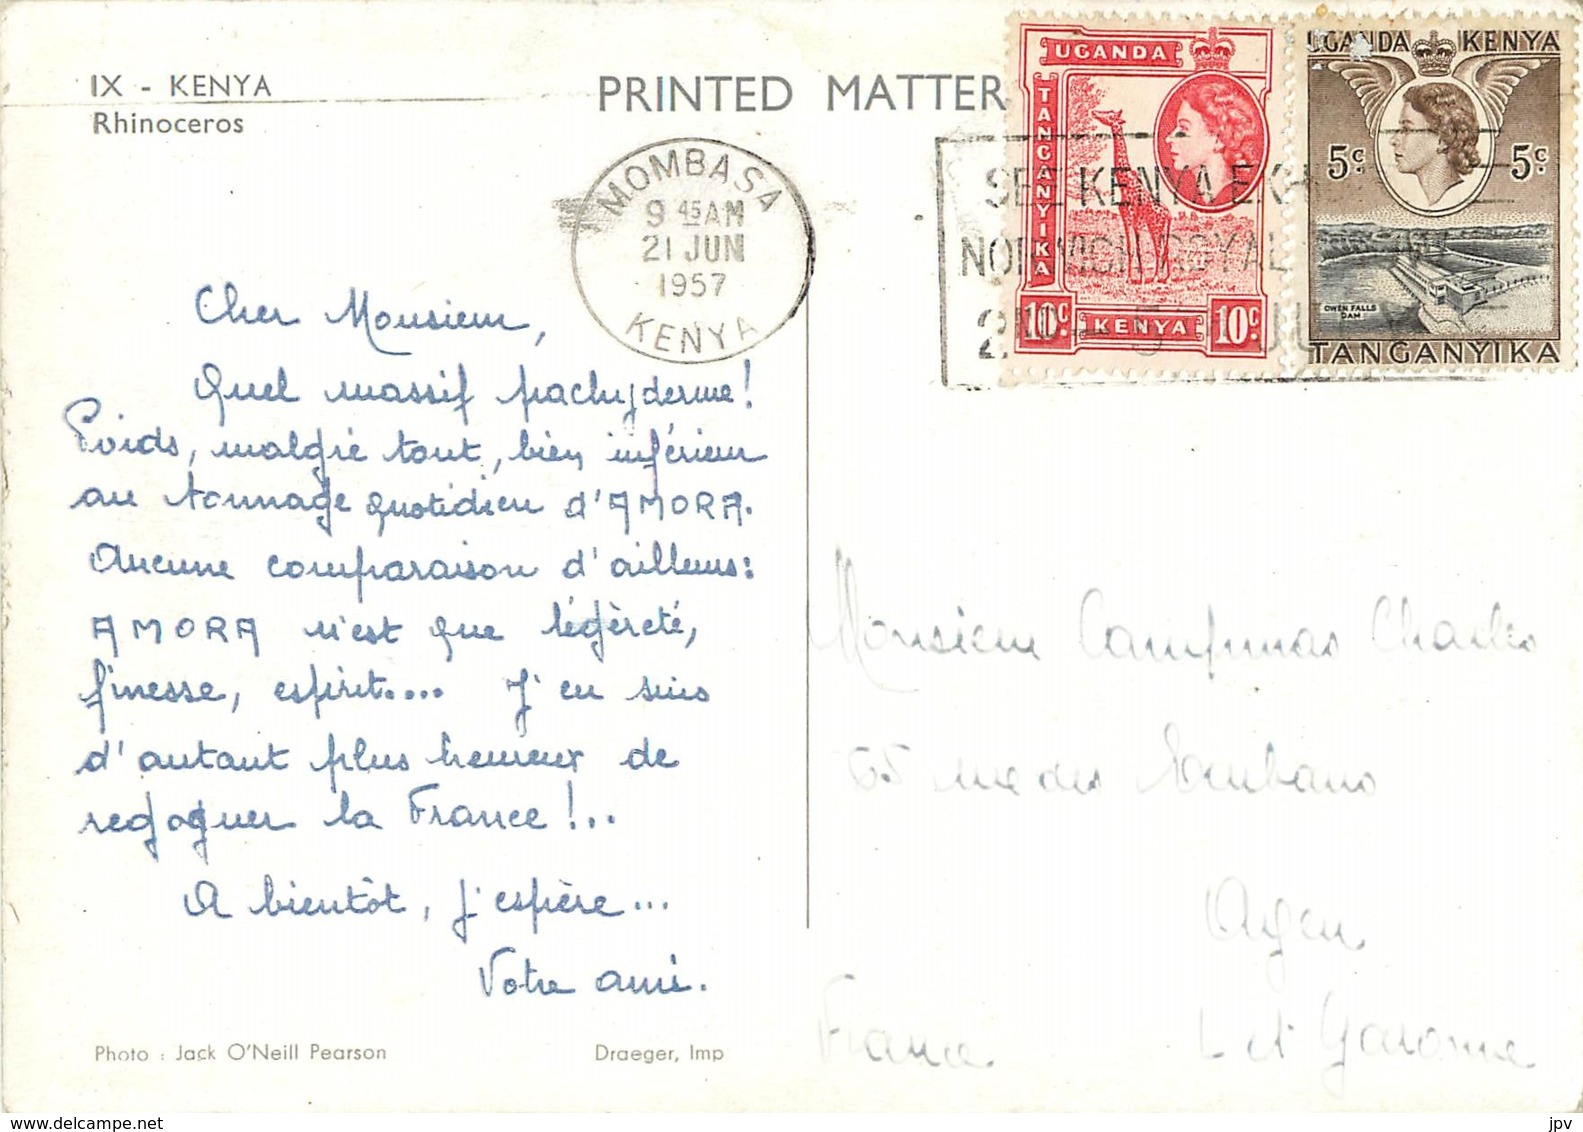 IX - KENYA
Rhinoceros
PRINTED MATTER
MOMBASA
9 45 AM
21 JUN
1957
KENYA
SEE KENYA
ROYAL
UGANDA
TANGANYIKA
10c. KENYA 10c.
UGANDA KENYA
5c 5c.
OWEN FALLS
DAM
TANGANYIKA
Cher Monsieur,
Quel massif pachyderme!
Poids, malgré tout, bien inférieur
au tonnage quotidien d'AMORA.
Aucune comparaison d'ailleurs:
AMORA n'est que légèreté,
finesse, esprit.... J'en suis
d'autant plus heureux de
regagner la France!..
A bientôt, j'espère...
Votre ami.
Photo : Jack O'Neill Pearson
Draeger, Imp
Monsieur Charles
rue des
Agen
France
L et Garonne
jpv